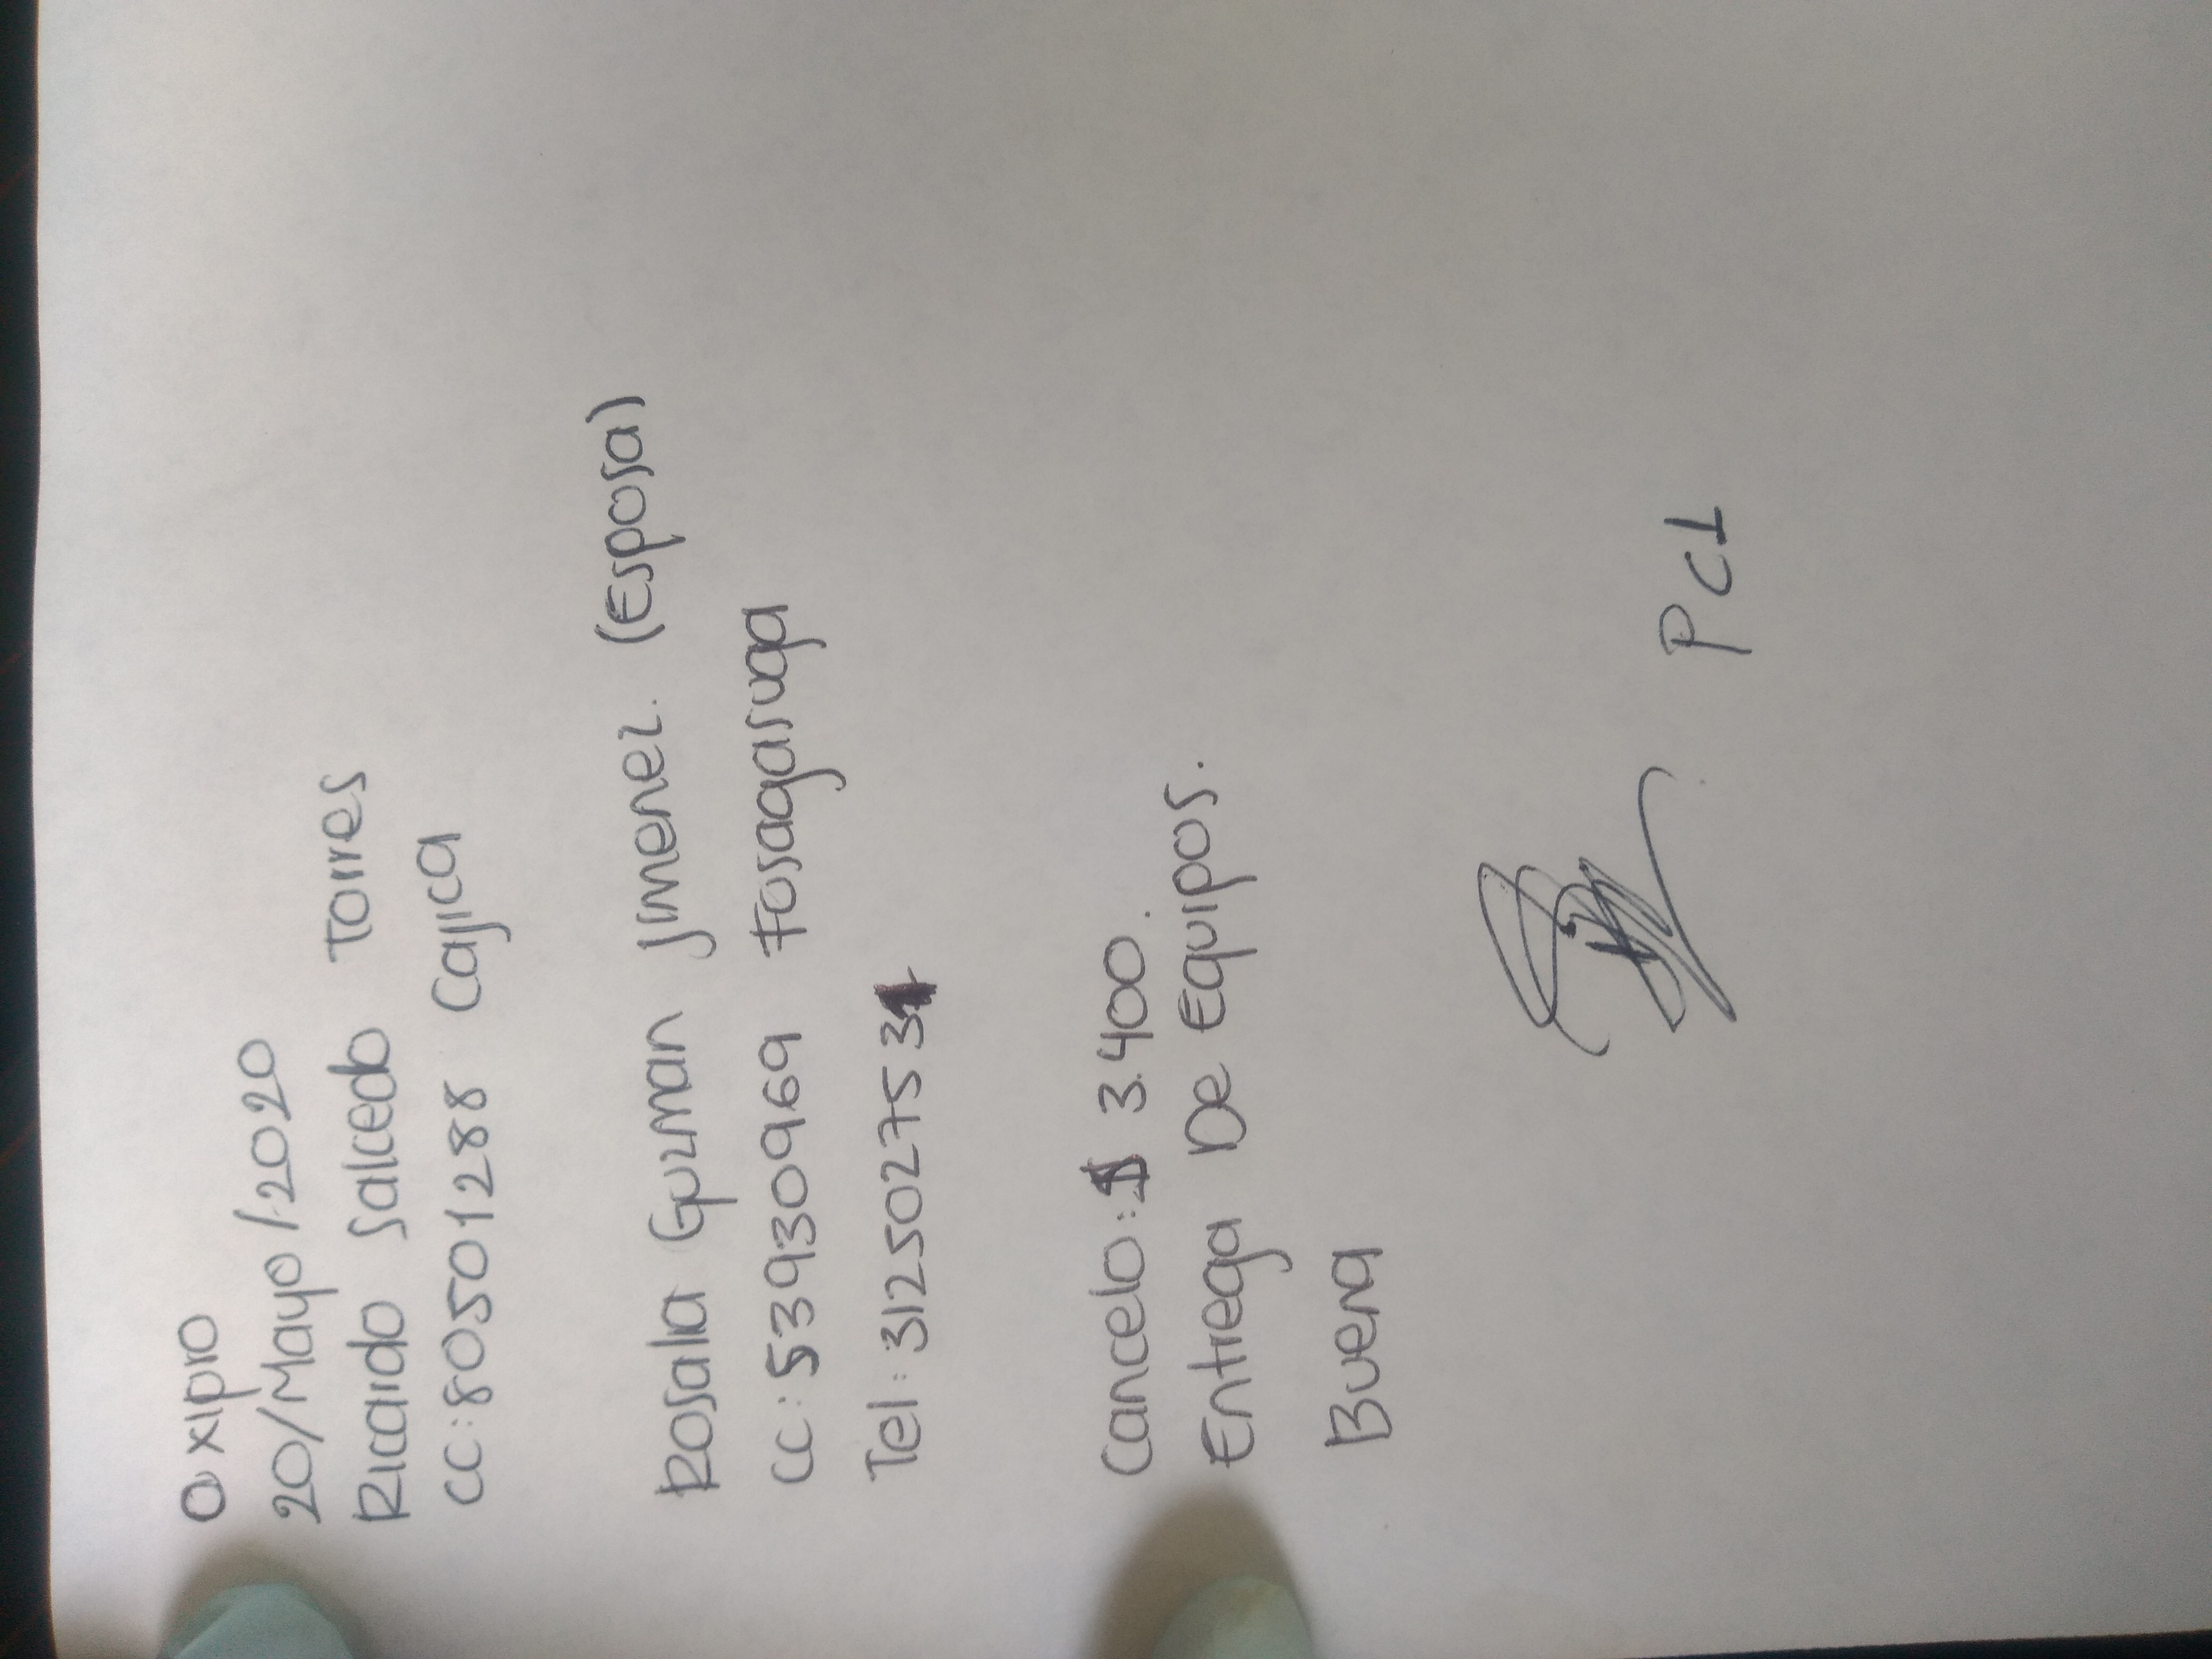 Oxipro
20/Mayo/2020
Ricardo Salcedo Torres
CC:80501288 Cajica
Rosalia Guzman Jimenez. (Esposa)
CC:53930969 Fosagasuga
Tel: 3125027531
Cancelo:$ 3.400.
Entrega De Equipos.
Buena
PC1